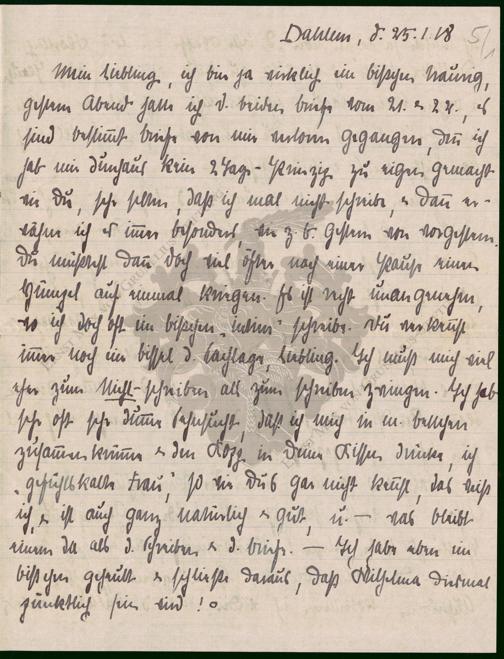 Dahlem, d. 25.1.18 5/1
Mein Liebling, ich bin ja wirklich ein bißchen traurig,
gestern Abend hatte ich d. beiden Briefe vom 21. & 22., es
sind bestimmt Briefe von mir verloren gegangen, denn ich
hab mir durchaus kein 2 Tage-Prinzip zu eigen gemacht
wie Du, sehr selten, daß ich mal nicht schreibe, & dann er-
wähne ich es immer besonders, wie z. B. gestern von vorgestern.
Du müßtest dann doch viel öfter nach einer Pause einen
auf einmal kriegen. Es ist recht unangenehm,
wo ich doch oft ein bißchen „intim“ schreibe. Du verkennst
immer noch ein bissel d. Sachlage, Liebling. Ich muß mich viel
eher zum Nicht-schreiben als zum schreiben zwingen. Ich hab
sehr oft sehr dumme Sehnsucht, daß ich mich in m. Bettchen
zusammenkrümme & den Kopf in Deine Kissen drücke, ich
„gefühlskalte Frau“, so wie Du's gar nicht kennst, das weiß
ich, & ist auch ganz natürlich & gut, u. – was bleibt
einem da als d. Schreiben & d. Briefe. – Ich habe eben ein
bißchen geheult & schließe daraus, daß Wilhelma diesmal
pünktlich sein wird!